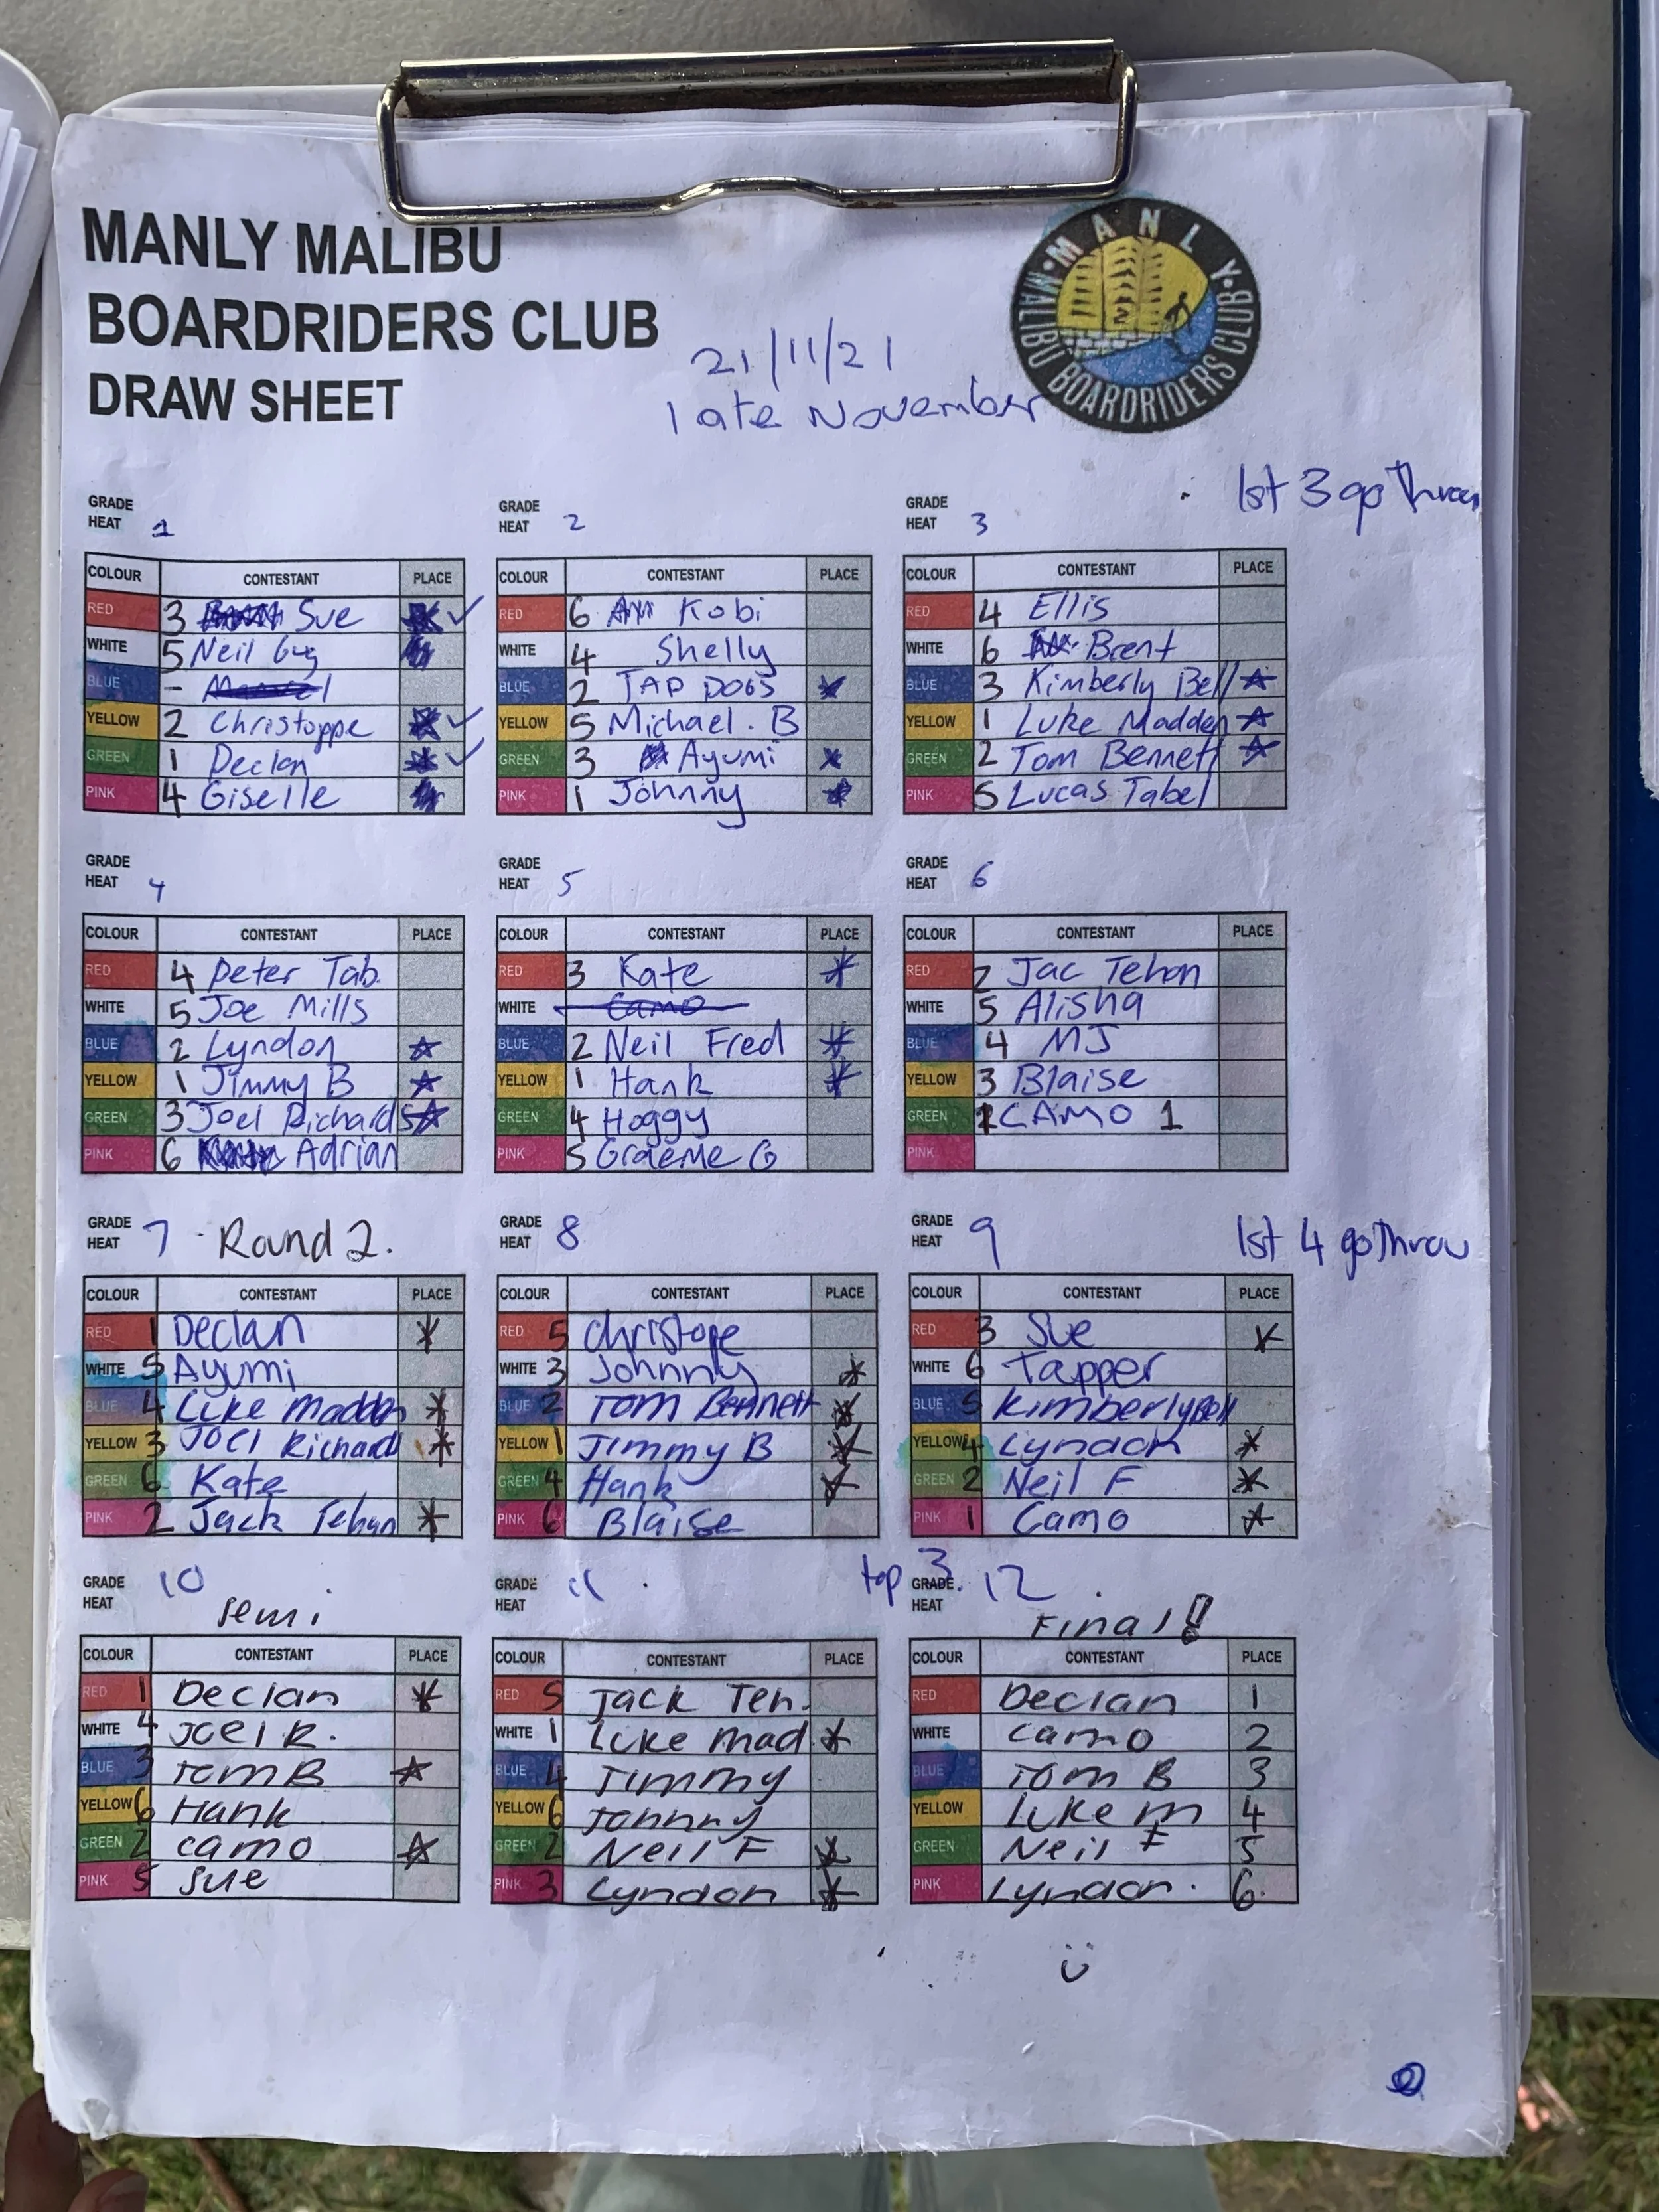 MANLY MALIBU
BOARDRIDERS CLUB
DRAW SHEET
21/11/21
late November
MANLY MALIBU BOARDRIDERS CLUB
1st 3 go Throu
GRADE
HEAT 1
COLOUR CONTESTANT PLACE
RED 3 Sue
WHITE 5 Neil Gug
BLUE -
YELLOW 2 Christoppe
GREEN 1 Declan
PINK 4 Giselle
GRADE
HEAT 2
COLOUR CONTESTANT PLACE
RED 6 Kobi
WHITE 4 Shelly
BLUE 2 TAP DOGS *
YELLOW 5 Michael. B
GREEN 3 Ayumi *
PINK 1 Johnny *
GRADE
HEAT 3
COLOUR CONTESTANT PLACE
RED 4 Ellis
WHITE 6 Brent
BLUE 3 Kimberly Bell *
YELLOW 1 Luke Madden *
GREEN 2 Tom Bennett *
PINK 5 Lucas Tabel
GRADE
HEAT 4
COLOUR CONTESTANT PLACE
RED 4 Peter Tab.
WHITE 5 Joe Mills
BLUE 2 Lyndon *
YELLOW 1 Jimmy B *
GREEN 3 Joel Richards *
PINK 6 Adrian
GRADE
HEAT 5
COLOUR CONTESTANT PLACE
RED 3 Kate *
WHITE Camo
BLUE 2 Neil Fred *
YELLOW 1 Hank *
GREEN 4 Hoggy
PINK 5 Graeme G
GRADE
HEAT 6
COLOUR CONTESTANT PLACE
RED 2 Jac Tehan
WHITE 5 Alisha
BLUE 4 MJ
YELLOW 3 Blaise
GREEN 1 CAMO 1
PINK
GRADE
HEAT 7 Round 2.
COLOUR CONTESTANT PLACE
RED 1 Declan *
WHITE 5 Ayumi
BLUE 4 Luke Madden *
YELLOW 3 Joel Richard *
GREEN 6 Kate
PINK 2 Jack Tehan *
GRADE
HEAT 8
COLOUR CONTESTANT PLACE
RED 5 Christope
WHITE 3 Johnny *
BLUE 2 Tom Bennett *
YELLOW 1 Jimmy B *
GREEN 4 Hank *
PINK 6 Blaise
GRADE
HEAT 9
1st 4 go Throu
COLOUR CONTESTANT PLACE
RED 3 Sue *
WHITE 6 Tapper
BLUE 5 Kimberly Bell
YELLOW 4 Lyndon *
GREEN 2 Neil F *
PINK 1 Camo *
GRADE
HEAT 10
semi
COLOUR CONTESTANT PLACE
RED 1 Declan *
WHITE 4 Joel R.
BLUE 3 Tom B *
YELLOW 6 Hank
GREEN 2 camo *
PINK 5 Sue
GRADE
HEAT 11
top 3.
COLOUR CONTESTANT PLACE
RED 5 Jack Teh.
WHITE 1 Luke Mad. *
BLUE 4 Jimmy
YELLOW 6 Johnny
GREEN 2 Neil F *
PINK 3 Lyndon *
GRADE
HEAT 12
Final!
COLOUR CONTESTANT PLACE
RED Declan 1
WHITE camo 2
BLUE Tom B 3
YELLOW Luke m 4
GREEN Neil F 5
PINK Lyndon. 6.